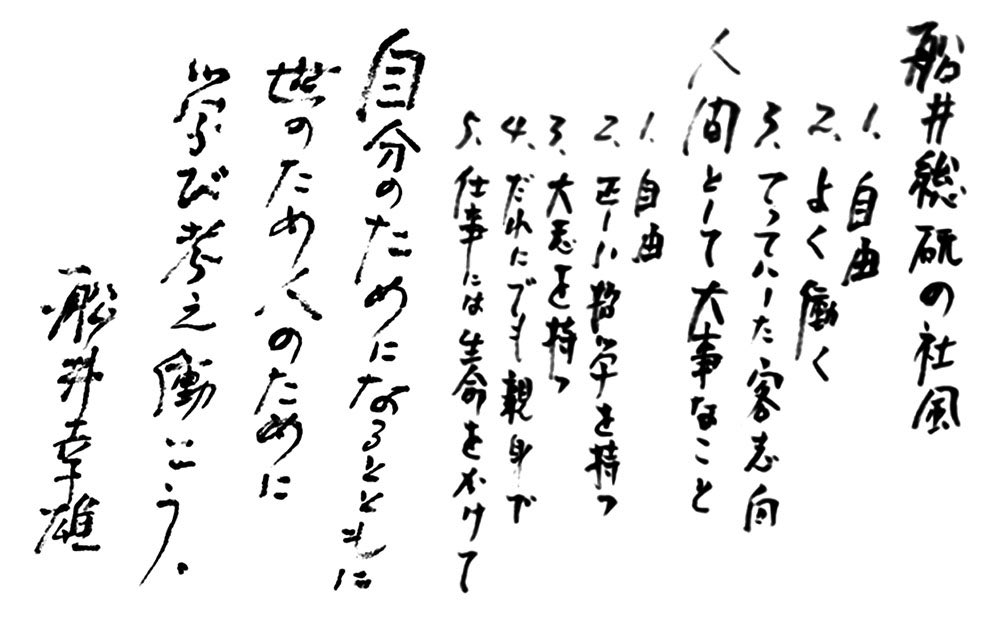 船井総研の社風
1. 自由
2. よく働く
3. てってーした客志向
人間として大事なこと
1. 自由
2. 正しい哲学を持つ
3. 大志を持つ
4. だれにでも親身で
5. 仕事には生命をかけて
自分のためになるとともに
世のため人のために
学び考え働こう。
船井幸雄